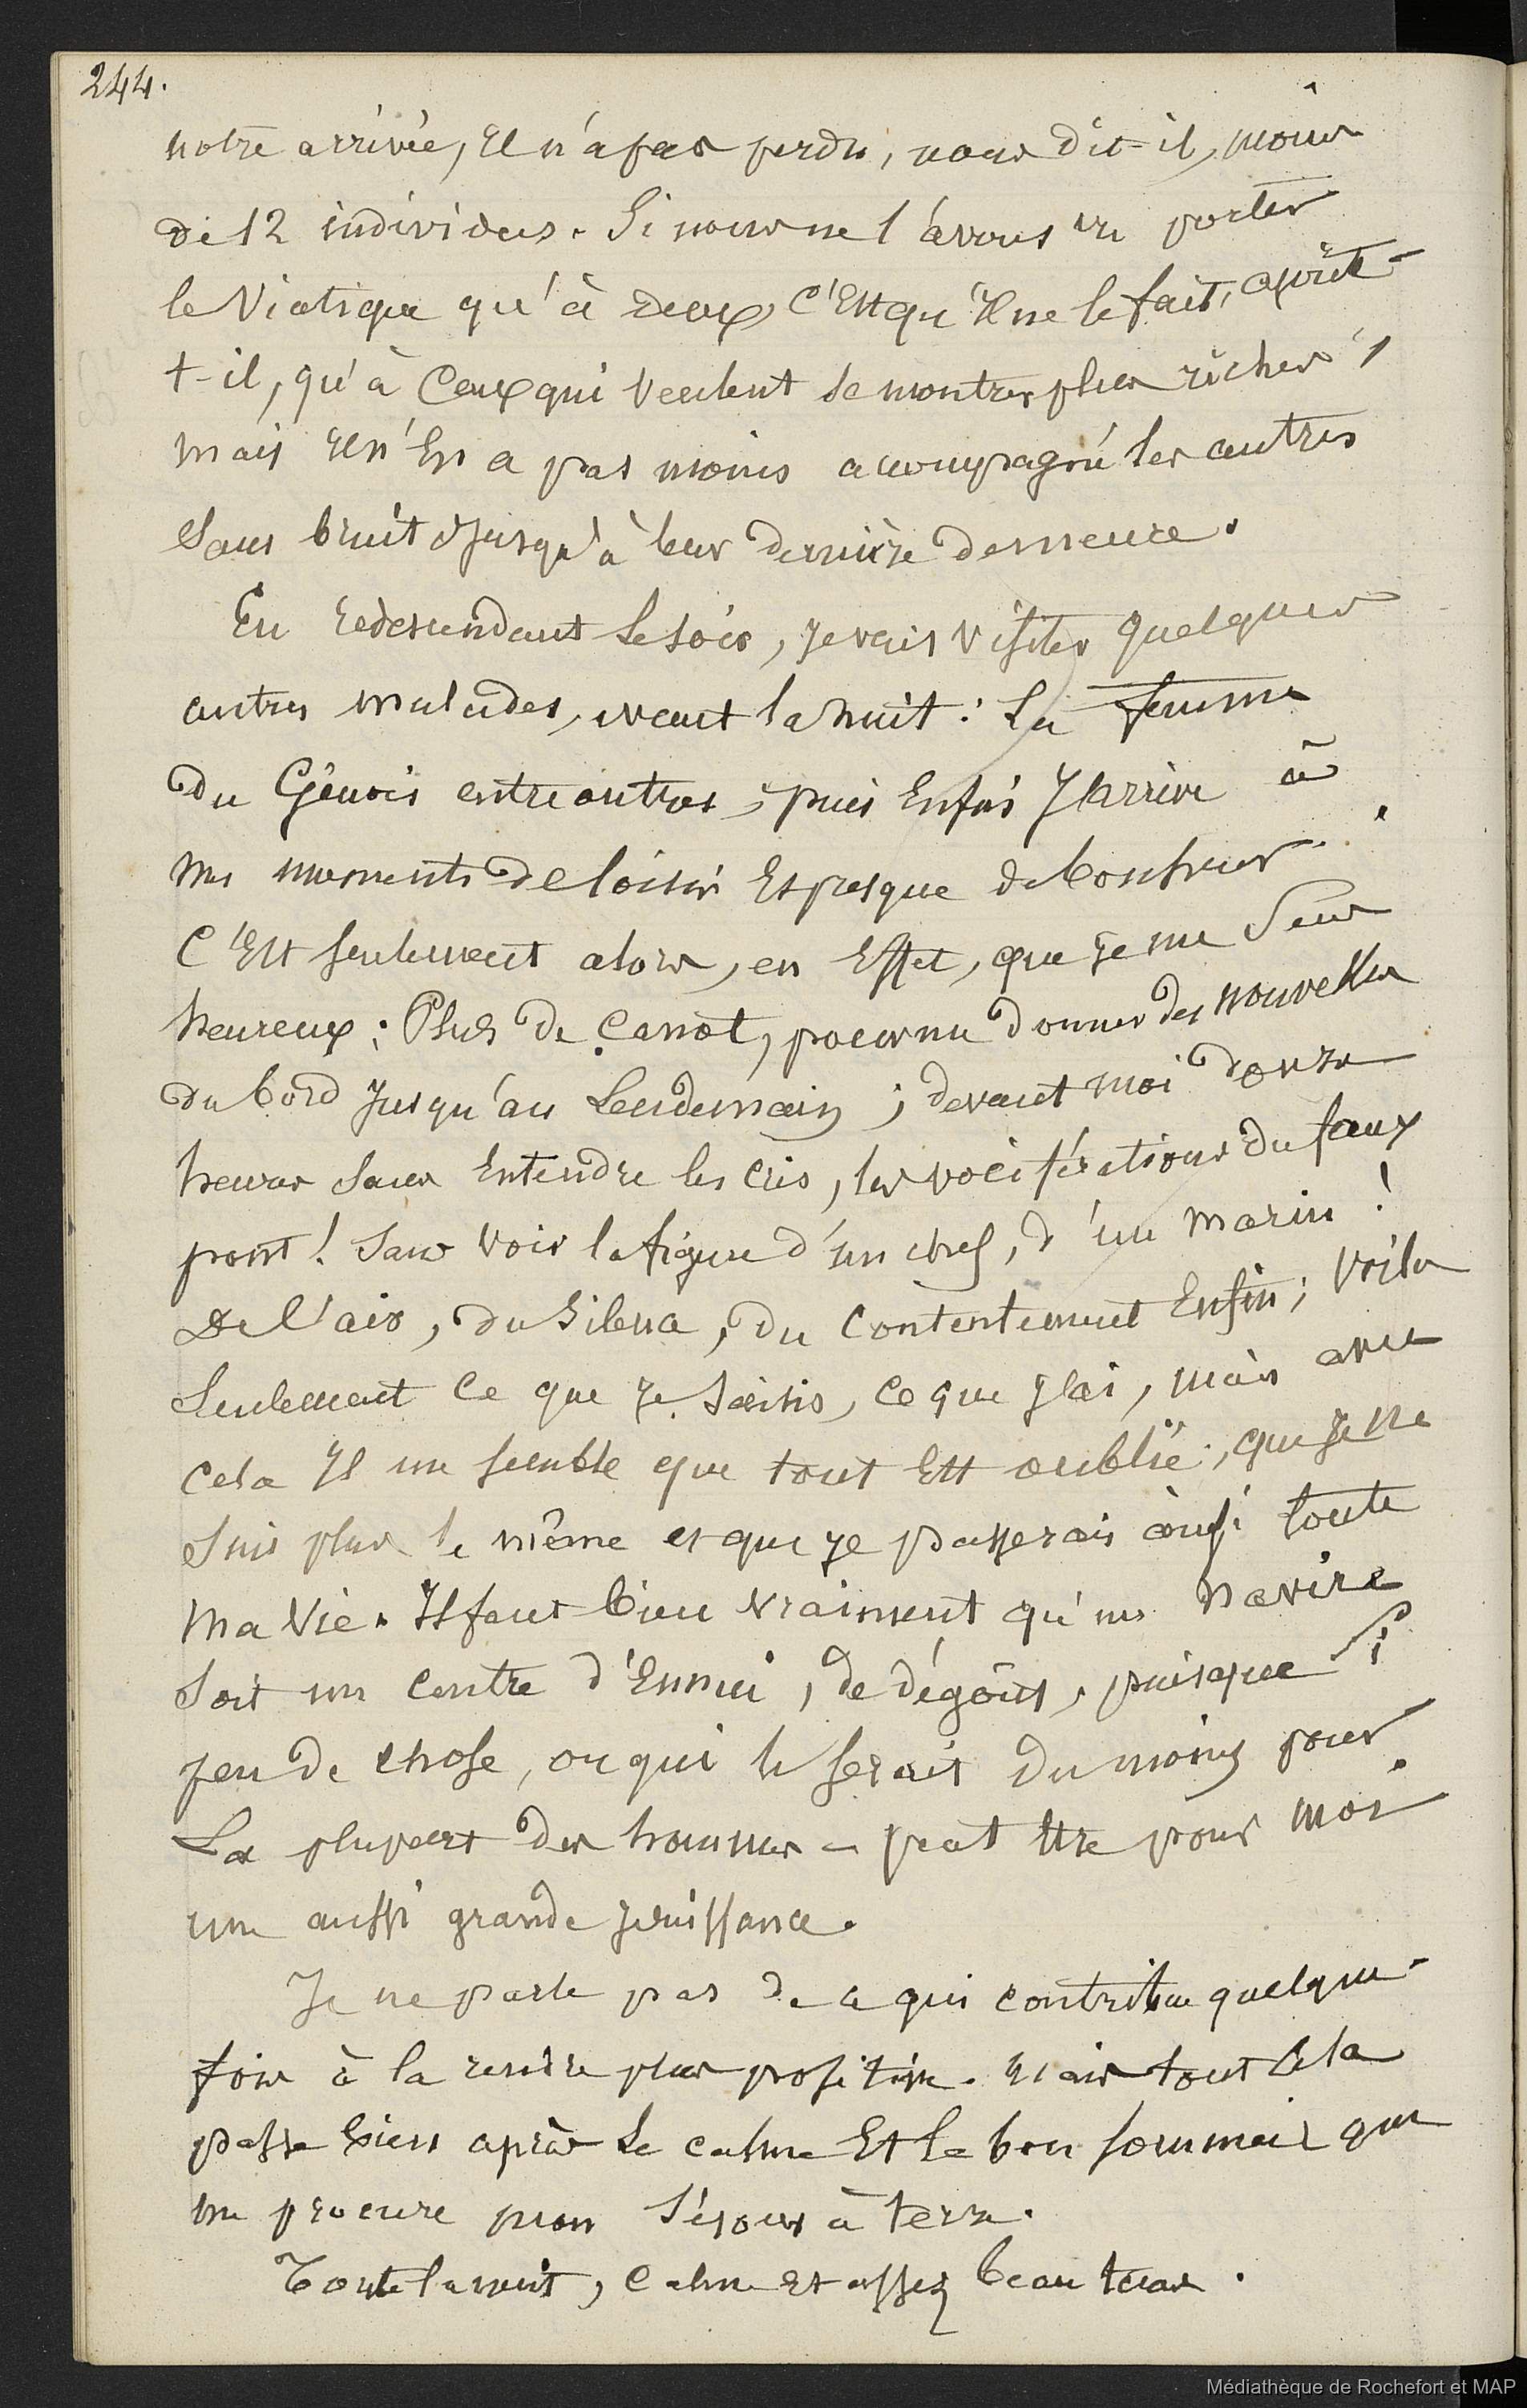 244.
notre arrivée, Il n'a pas perdu, nous dit-il, moins
de 12 individus. Si nous ne l'avons vu porter
le Viatique qu'à deux, C'Est qu'Il ne le fait, ajoute-
t-il, qu'à Ceux qui veulent se montrer plus riches,
mais Il n'En a pas moins accompagné les autres
sans bruit Jusqu'à leur dernière demeure.
En redescendant le soir, Je vais visiter quelques
autres malades, avant la nuit : La femme
du Génois entre autres, puis Enfin J'arrive à
mes moments de loisir Et presque de bonheur.
C'Est seulement alors, en Effet, que Je me Sens
heureux : Plus de Canot, pour me donner des nouvelles
du bord Jusqu'au Lendemain ; devant moi douze
heures sans Entendre les cris, les vociférations du faux
pont ! sans voir la figure d'un chef, d'un marin !
De l'air, du Silence, du Contentement Enfin ; voila
Seulement Ce que Je saisis, Ce que J'ai, mais avec
Cela Il me semble que tout Est oublié, que Je ne
suis plus le même et que Je passerais ainsi toute
Ma Vie. Il faut bien vraiment qu'un Navire
soit un Centre d'Ennui, de dégoût, puisque si
peu de chose, ou qui le serait du moins pour
La plupart des hommes - peut Etre pour moi
une aussi grande Jouissance.
Je ne parle pas de ce qui contribue quelque-
fois à la rendre plus positive. Mais tout Cela
passe bien après Le calme Et le bon sommeil que
me procure mon Séjour à terre.
Toute la nuit, Calme Et assez beau tems.
Médiathèque de Rochefort et MAP